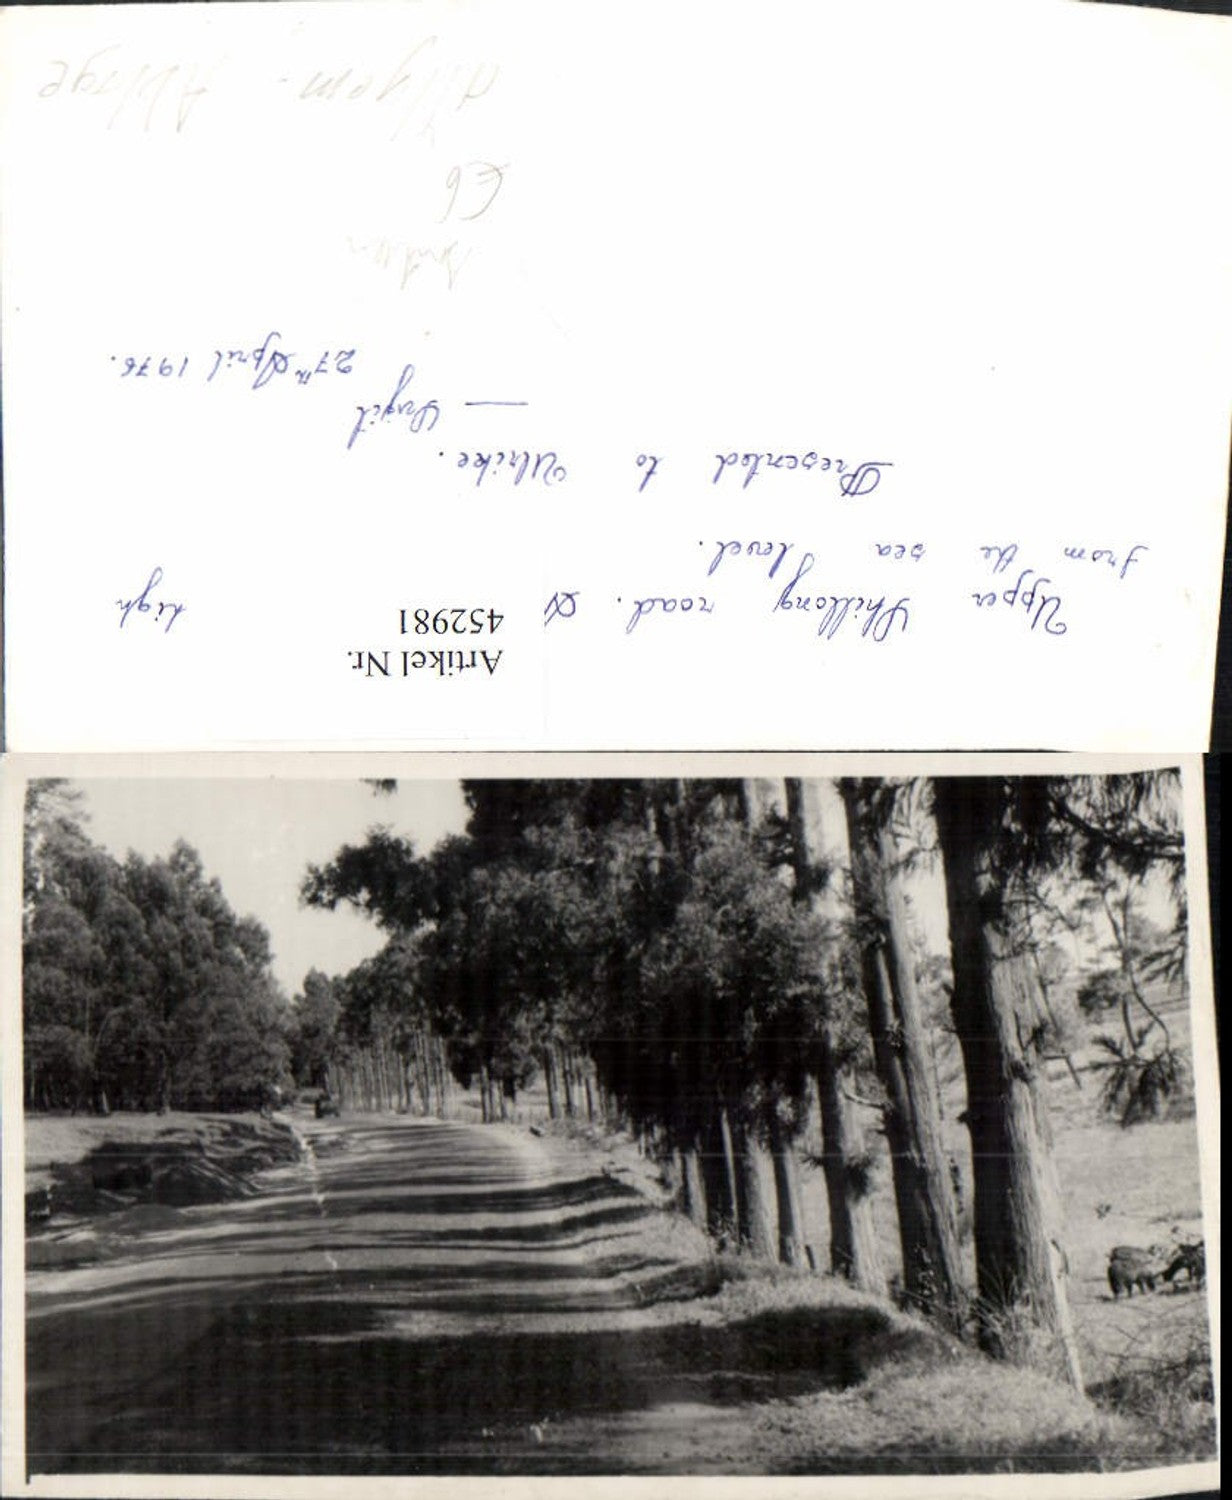 Artikel Nr.
452981
Upper Shillong road. A high
from the sea level.
Presented to Ulrike.
— Sujit
27th April 1976.
Indien
€6
Allgem - Ablage